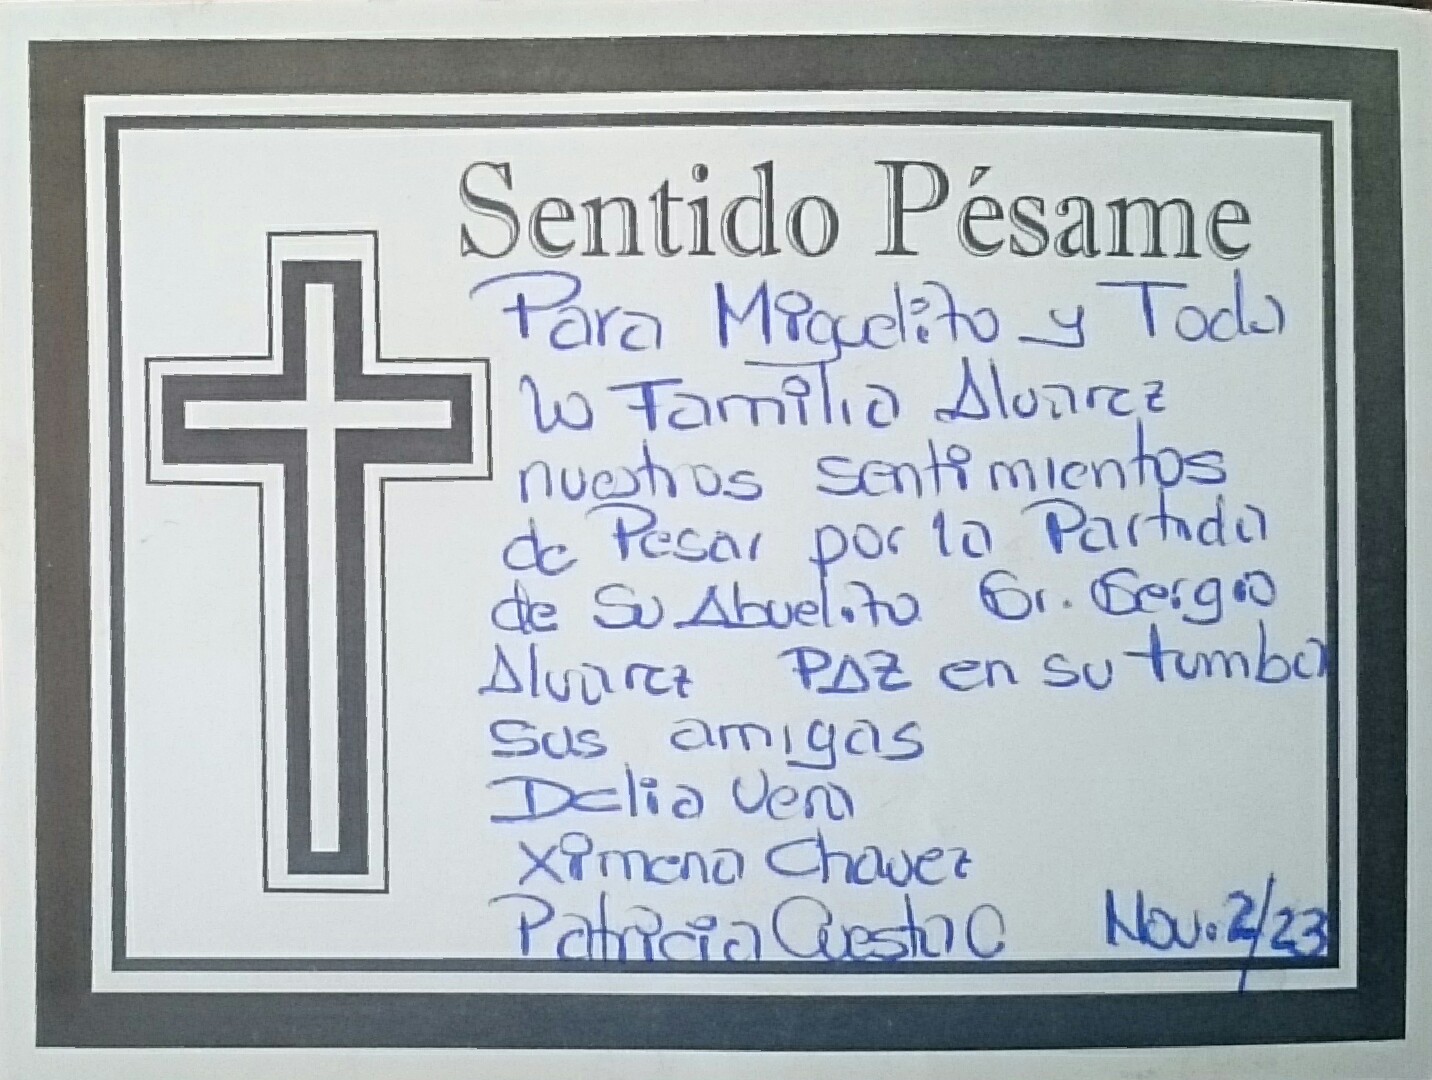 Sentido Pésame
Para Miguelito y Toda
la Familia Alvarez
nuestros sentimientos
de Pesar por la Partida
de Su Abuelito Sr. Sergio
Alvarez PAZ en su tumba
Sus amigas
Delia Vera
Ximena Chavez
Patricia Cuesta C
Nov. 2/23